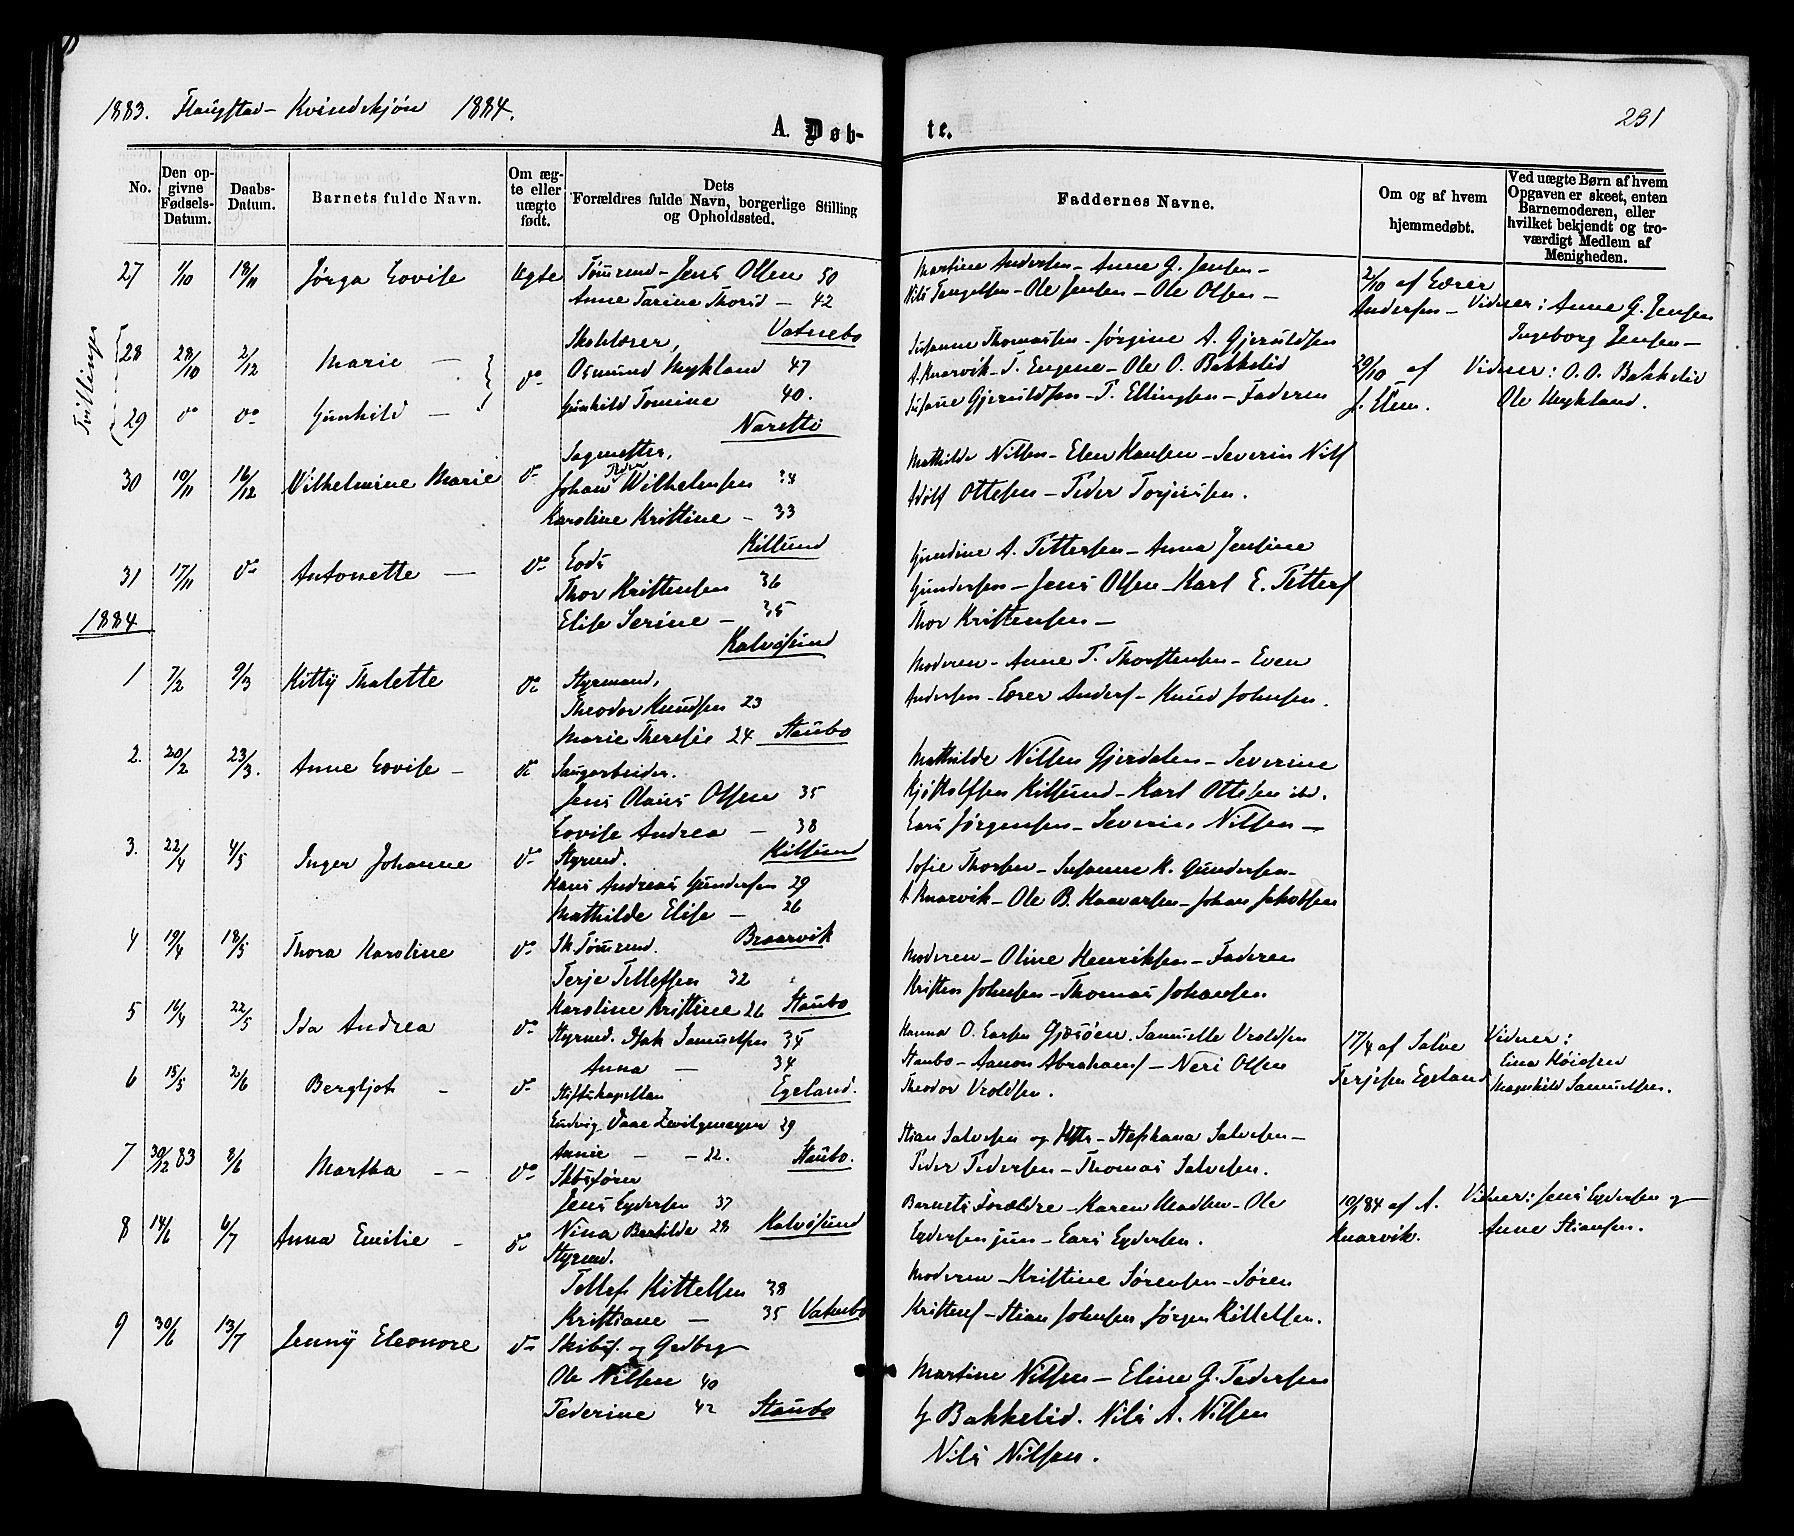 1883. Flangstad - Kvindekjøn 1884.
A. Døb-
te.
231
No.
Den opgivne Fødsels-Datum.
Daabs-Datum.
Barnets fulde Navn.
Om ægte eller uægte født.
Dets Forældres fulde Navn, borgerlige Stilling og Opholdssted.
Faddernes Navne.
Om og af hvem hjemmedøbt.
Ved uægte Børn af hvem Opgaven er skeet, enten Barnemoderen, eller hvilket bekjendt og troværdigt Medlem af Menigheden.
27 1/10 18/11 Jørga Lovise Ægte Tømrmd - Jens Olsen 50
Anne Tarine Thorsd - 42
Vatnebo
Martine Andersen - Anne G. Jensen -
Nils Tengelsen - Ole Jensen - Ole Olsen -
2/10 af Lærer
Andersen - Vidner: Anne G. Jensen
Ingeborg Jensen -
Tvillinger
28 28/10 2/12 Marie - do Skolelærer,
Osmund Mykland 47
29 do do Gunhild - Gunhild Tomine 40.
Narestø
Susanne Thomassen - Jørgine A. Gjeruldsen
A. Knarvik - T. Eugene - Ole O. Bakkelid
Susanne Gjeruldsen - P. Ellingsen - Faderen
29/10 af
J. Clem.
Vidner: O. O. Bakkelid
Ole Mykland.
30 10/11 16/12 Vilhelmine Marie do Sagmester,
Johan Peder Wilhelmsen 34
Karoline Kristine - 33
Kilsund
Mathilde Nilsen - Elen Hansen - Severin Nils
Adolf Ottesen - Peder Torjussen.
31 17/11 do Antonette - do Lods
Thor Kristensen 36
Elise Serine - 35
Kalvøsund
Gundine A. Pettersen - Anna Jensine
Gundersen - Jens Olsen - Karl E. Petters
Thor Kristensen -
1884
1 7/2 9/3 Kitty Thalette do Styrmand,
Theodor Knudsen 23
Marie Theresie 24 Staubo
Moderen - Anne T. Thorstensen - Even
Andersen - Lærer Anders - Knud Johnsen.
2. 20/2 23/3. Anne Lovise - do Saugarbeider.
Jens Olaus Olsen 35
Lovise Andrea - 38
Kilsund
Mathilde Nilsen Gjerdalen - Severine
Kjøstolfsen Kilsund - Karl Ottesen ibd.
Lars Jørgensen - Severin Nilsen -
3. 22/4 4/5 Inger Johanne do Styrmd.
Hans Andreas Gundersen 29
Mathilde Elise - 26
Braarvik
Sofie Thorsen - Susanne K. Gundersen -
A. Knarvik - Ole B. Haavorsen - Johan Jakobsen
4 19/4 18/5 Thora Karoline do Sk. Tømrmd.
Terje Tellefsen 32
Karoline Kristine 26 Staubo
Moderen - Oline Henriksen - Faderen
Kristen Johnsen - Thomas Johansen
5 16/4 22/5 Ida Andrea do Styrmd. Isak Samuelsen 35
Anna - 34
Egeland.
Hanna O. Larsen Gjesøen. Samuelle Vroldsen
Staubo - Aanon Abrahams - Neri Olsen
Theodor Vroldsen.
17/4 af Salve
Terjesen Egeland
Vidner:
Lina Høiesen
Magnhild Samuelsen.
6 15/5 2/6 Bergljot - do Stiftskapellan
Ludvig Daae Zwilgmeyer 29
Annie - - 22. Staubo.
Stian Salvesen og Hstr - Stephana Salvesen -
Peder Pedersen - Thomas Salvesen.
7 30/12 83 8/6 Martha - - do Skbsfører
Jens Eydersen 37
Nina Bertilde 28 Kalvøsund
Barnets Forældre - Karen Madsen - Ole
Eydersen jun - Lars Eydersen.
10/1 84 af A.
Knarvik.
Vidner: Jens Eydersen og
Anne Stiansen.
8 14/6 6/7 Anna Emilie - do Styrmd.
Tellef Kittelsen 38
Kristiane - 35 Vatnebo
Moderen - Kristine Sørensen - Søren
Kristens - Stian Johnsen Jørgen Kittelsen.
9 30/6 13/7 Jenny Eleonore do Skibsf. og Gedbrg
Ole Nilsen 40
Pederine 42 Staubo
Martine Nilsen - Eline G. Pedersen
G Bakkelid. Nils A. Nilsen
Nils Nilsen.